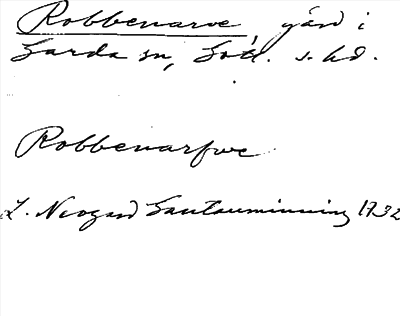 Robbenarve gård i
Garda sn, Gotl. s. hd.
Robbenarfve
L. Neogard Gautauminning 1732